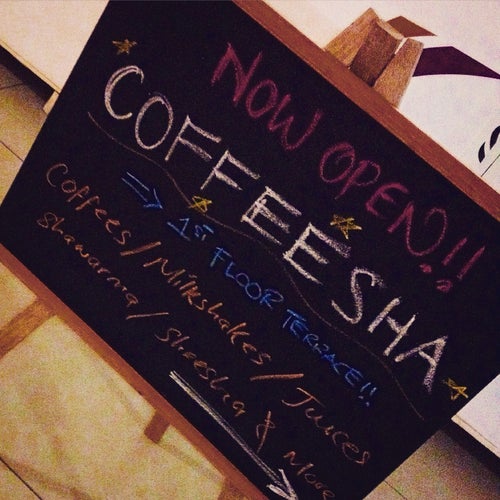 NOW OPEN!!
COFFEESHA
⇒ 1ST FLOOR TERRACE!!
Coffees / Milkshakes / Juices
Shawarma / Sheesha & More